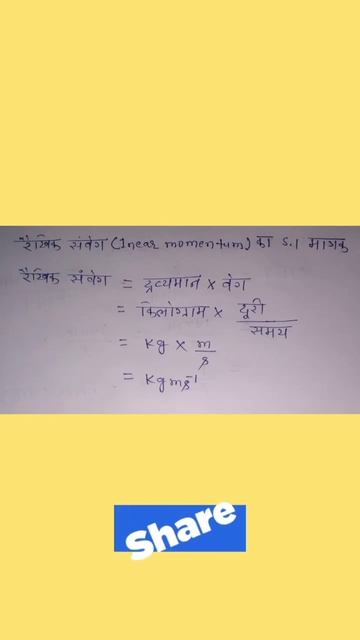 रैखिक संवेग (Inear momentum) का S.I मात्रक
रैखिक संवेग = द्रव्यमान × वेग
= किलोग्राम × दूरी / समय
= Kg × m / s
= Kgms⁻¹
Share